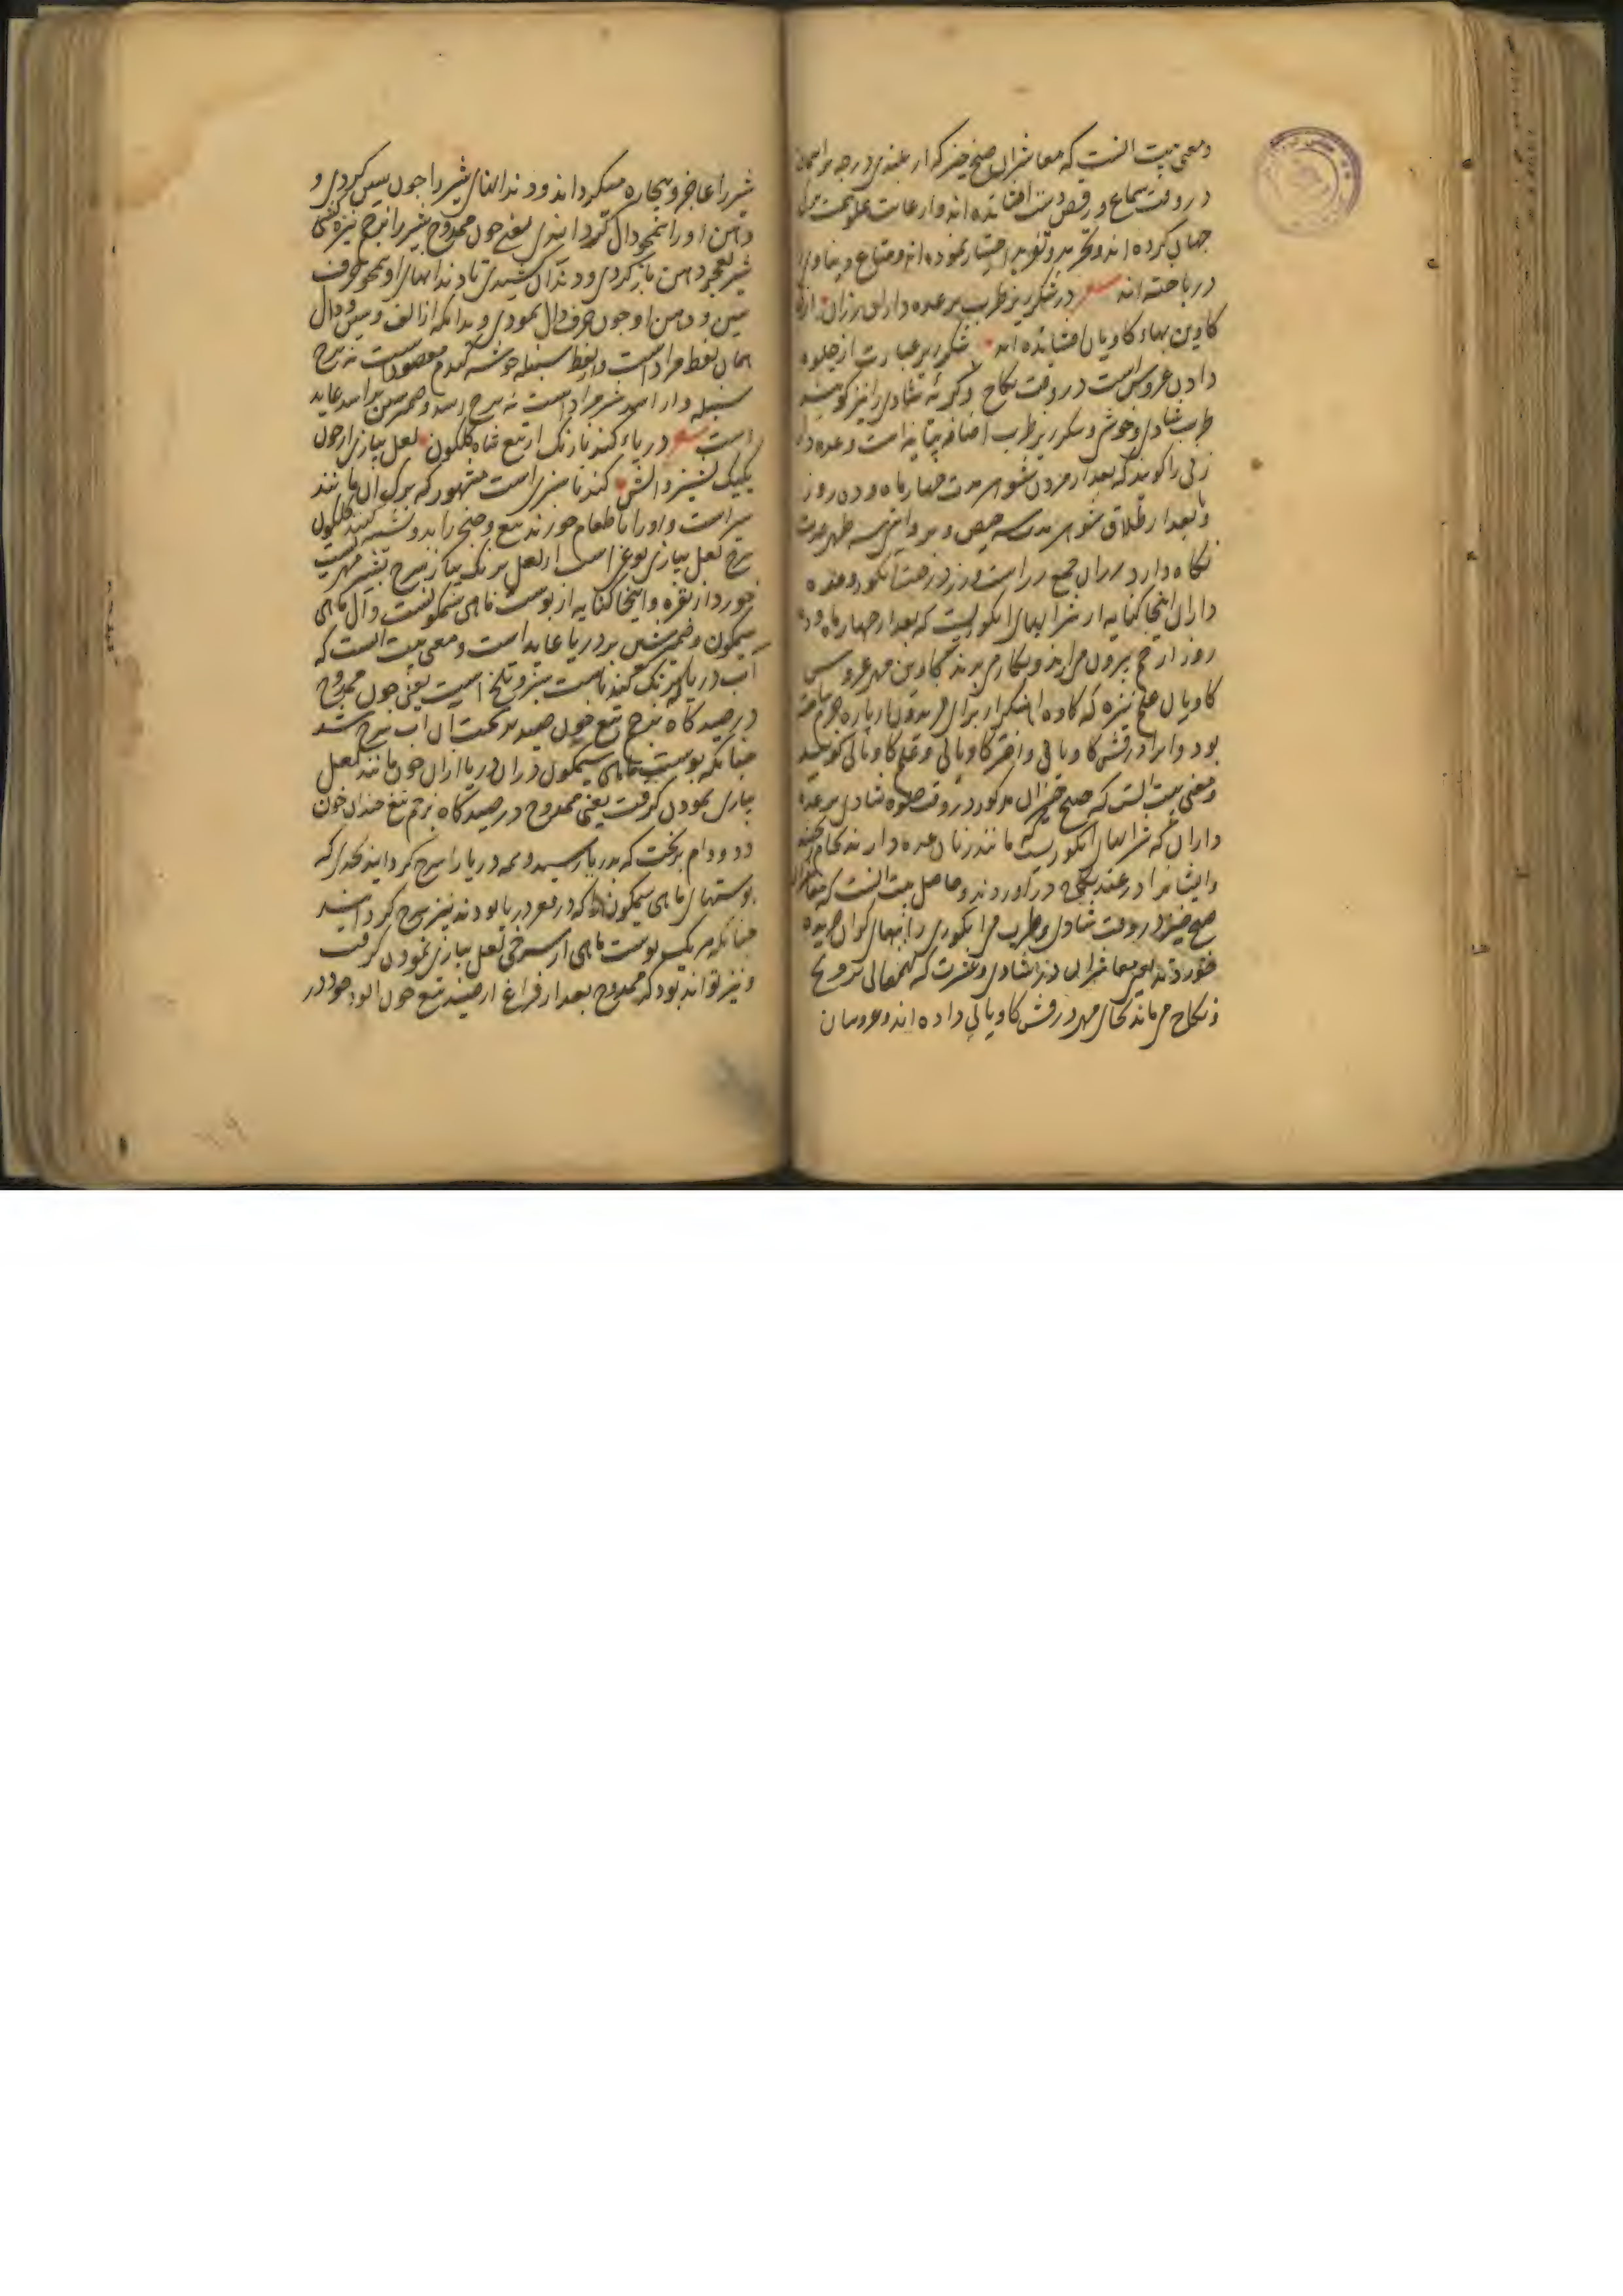 ومعنی بیت انست که معاشران صبح خیز که از بلندی درجه بر آسمان
در وقت سماع و رقص دست افشانده اند و از غایت علو همت ترک
جهان کرده اند و تجرید و تفرید اختیار نموده اند و متاع دنیاوی
در باخته اند شعر در شکر ریز طرب بر عده داران رزان از
کاوین بهاء کاویان افشانده اند شکر ریز عبارت از جلوه
دادن عروس است در وقت نکاح و گریه شادی را نیز گویند
طرب شادی و خوشی و شکر ریز طرب اضافه بیانیه است و عده دار
زنی را گویند که بعد از مردن شوی مدت چهار ماه و ده روز
و بعد از طلاق شوی مدت سه حیض و بروایتی سه طهر عدت
نگاه دارد رزان جمع رز است و رز درخت انگور و عده
داران اینجا کنایه از شرابهای انگوریست که بعد از چهار ماه و ده
روز از خم بیرون می آرند و بکار می برند کاوین مهر عروس
کاویان علم نیزه که کاوه اهنگر از برای فریدون از پاره چرم ساخته
بود و آنرا درفش کاویانی و اختر کاویانی و علم کاویانی گویند
ومعنی بیت انست که صبح خیزان مذکور در وقت جلوه شادی بر عده
داران که شرابهای انگوریست مانند زنان عده دارند
وایشانرا در عقد نکاح در آوردند و حاصل بیت انست که
صبح خیز در وقت شادی و طرب می انگوری را ببهای گران خریده
خورده اند یعنی معاشران در شادی و عشرت که بمعالی تزویج
و نکاح می ماند بجای مهر درفش کاویانی داده اند و عروسان
شیر را عاجز و بیچاره میگرداند و دندانهای شیر را چون سین کردی و
دهن او را همچو دال گردانیدی یعنی چون ممدوح شیر را بزخم نیزه کشتی
شیر بعجز دهن باز کردی و دندان کشیدی تا دندانهای او همچو حرف
سین و دهن او چون حرف دال نمودی و بدانکه از الف و سین و دال
همان لفظ مراد است و از لفظ سنبله خوشه گندم مقصود است نه برج
سنبله و از اسد شیر مراد است نه برج اسد و ضمیر شین بر اسد عاید
است شعر دریاء گندنا رنگ از تیغ شاه گلگون لعل پیازی از خون
یکیک پشیز دانش گندنا سبزی است مشهور که برگ آن مانند
سیر است و او را با طعام خورند تیغ و خنجر را بدو نسبت کنند گلگون
سرخ لعل پیازی نوعی است از لعل برنگ پیاز سرخ پشیز مهریست
خورد از نقره و اینجا کنایه از پوست ماهی سیمگونست و آن ماهی
سیمگون و ضمیر شین بر دریا عاید است و معنی بیت انست که
آب دریا که برنگ گندناست سبز و تلخ است یعنی چون ممدوح
در صیدگاه بزخم تیغ خون صید بریخت آن آب سرخ شد
چنانکه پوست ماهی سیمگون در آن دریا از آن خون مانند لعل
پیازی نمودن گرفت یعنی ممدوح در صیدگاه بزخم تیغ چندان خون
دد و دام بریخت که بدریا رسید و همه دریا را سرخ گردانید بحدی که
پوستهای ماهی سیمگون که در قعر دریا بودند نیز سرخ گردانید
چنانکه هر یک پوست ماهی از سرخی لعل پیازی نمودن گرفت
و نیز تواند بود که ممدوح بعد از فراغ از صید تیغ خون الود خود در